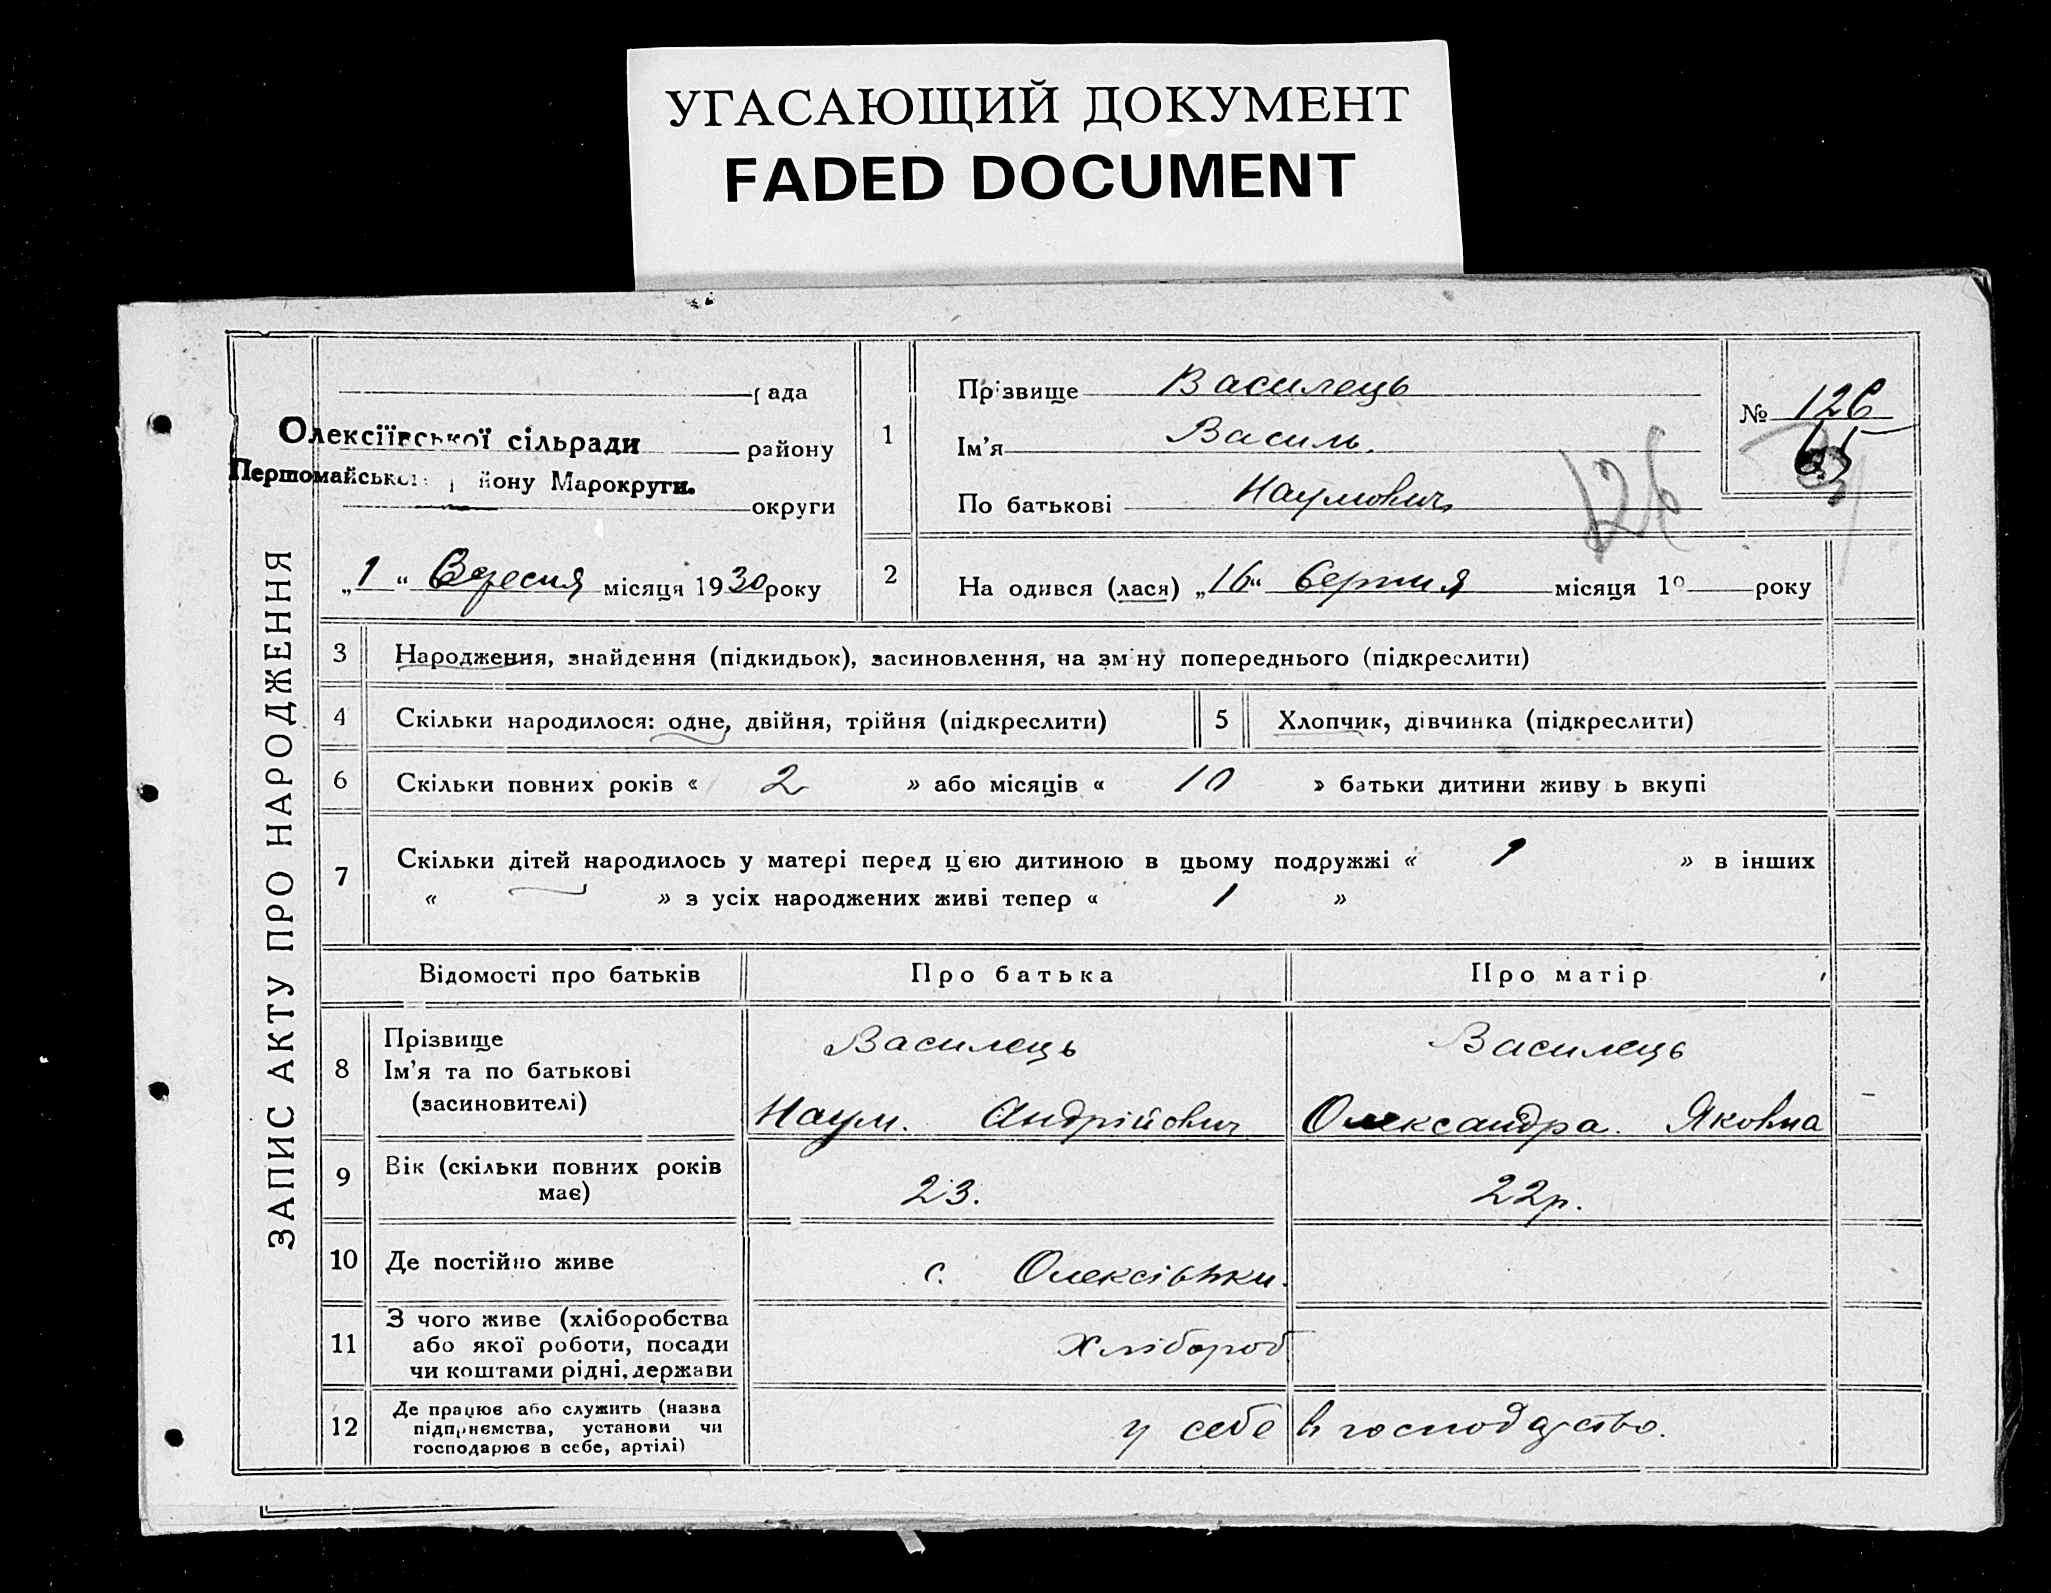 УГАСАЮЩИЙ ДОКУМЕНТ
FADED DOCUMENT
ЗАПИС АКТУ ПРО НАРОДЖЕННЯ
рада
Олексіївської сільради
району
Першомайськ йону Марокруги.
округи
„1“ Вересня місяця 1930 року
1
Прізвище Василець
Ім'я Василь.
По батькові Наумович
№ 126
65
126
2
На одився (лася) „16“ Серпня місяця 19 року
3
Народження, знайдення (підкидьок), засиновлення, на зміну попереднього (підкреслити)
4
Скільки народилося: одне, двійня, трійня (підкреслити)
5
Хлопчик, дівчинка (підкреслити)
6
Скільки повних років « 2 » або місяців « 10 » батьки дитини живу ь вкупі
7
Скільки дітей народилось у матері перед цією дитиною в цьому подружжі « 1 » в інших
« — » з усіх народжених живі тепер « 1 »
Відомості про батьків
Про батька
Про матір
8
Прізвище
Ім'я та по батькові
(засиновителі)
Василець
Наум. Андрійович
Василець
Олександра. Яковна
9
Вік (скільки повних років
має)
23.
22р.
10
Де постійно живе
с. Олексіівки.
11
З чого живе (хліборобства
або якої роботи, посади
чи коштами рідні, держави
Хлібороб
12
Де працює або служить (назва
підприємства, установи чи
господарює в себе, артілі)
у себе в господарство.